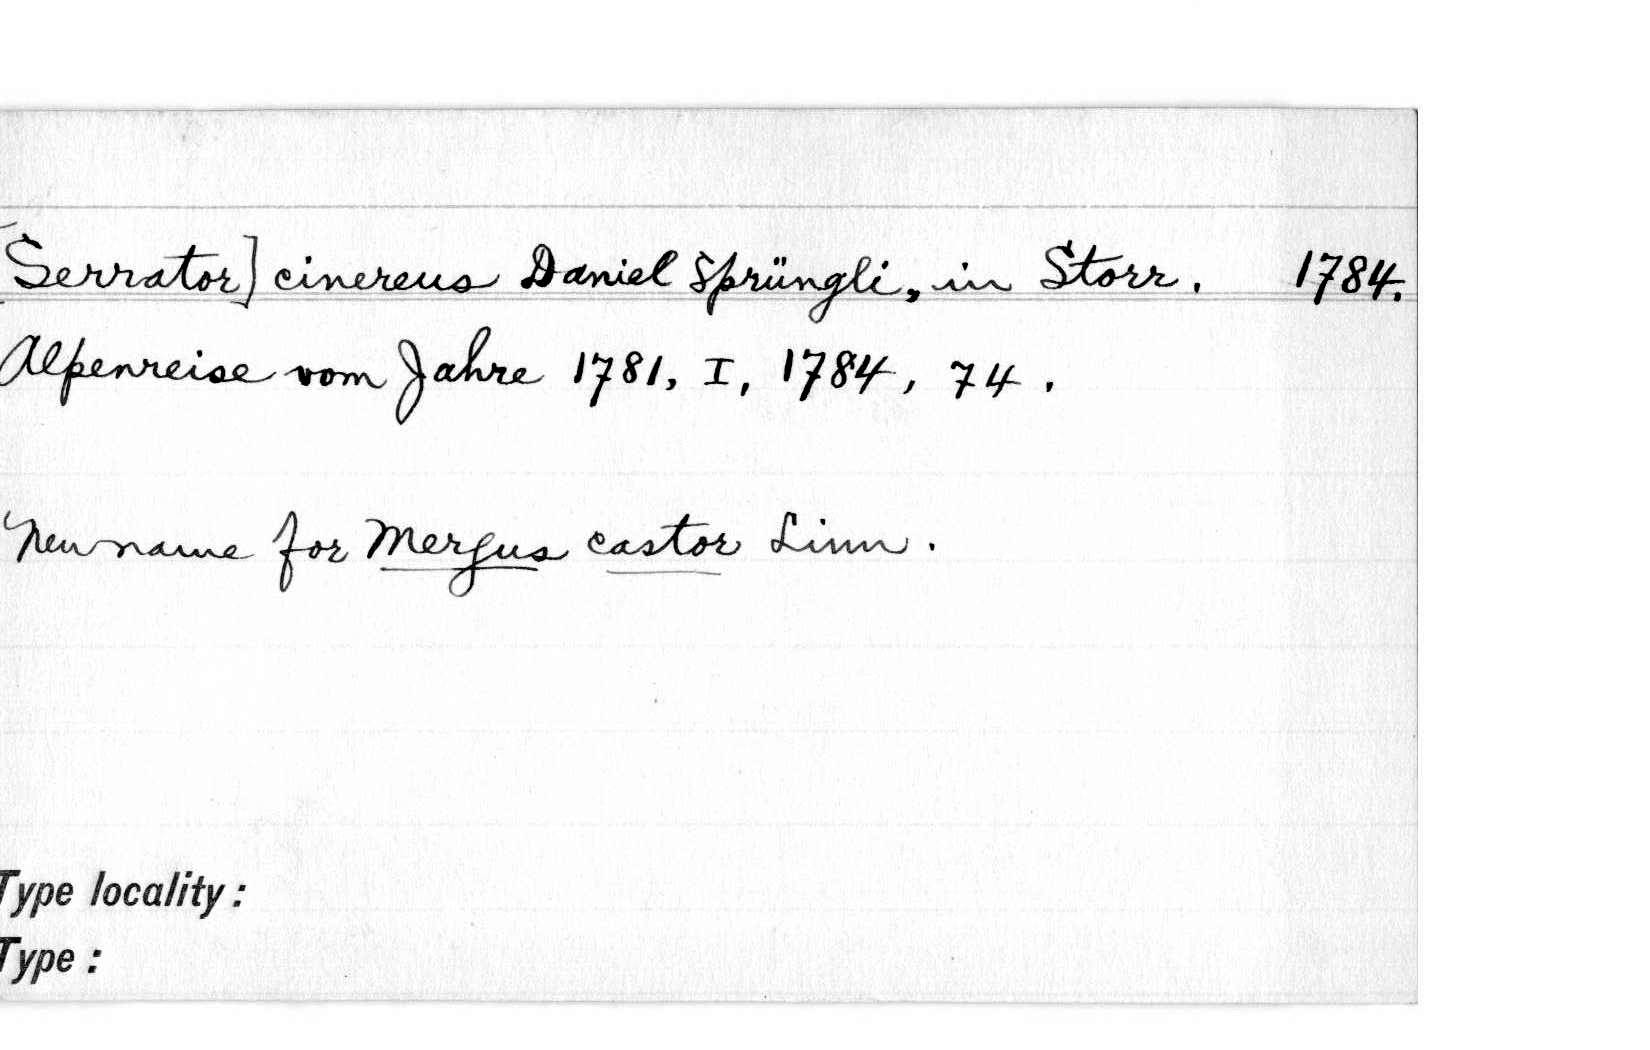 [Serrator] cinereus Daniel Sprüngli, in Storr. 1784.
Alpenreise vom Jahre 1781, I, 1784, 74.
New name for Mergus castor Linn.
Type locality:
Type: